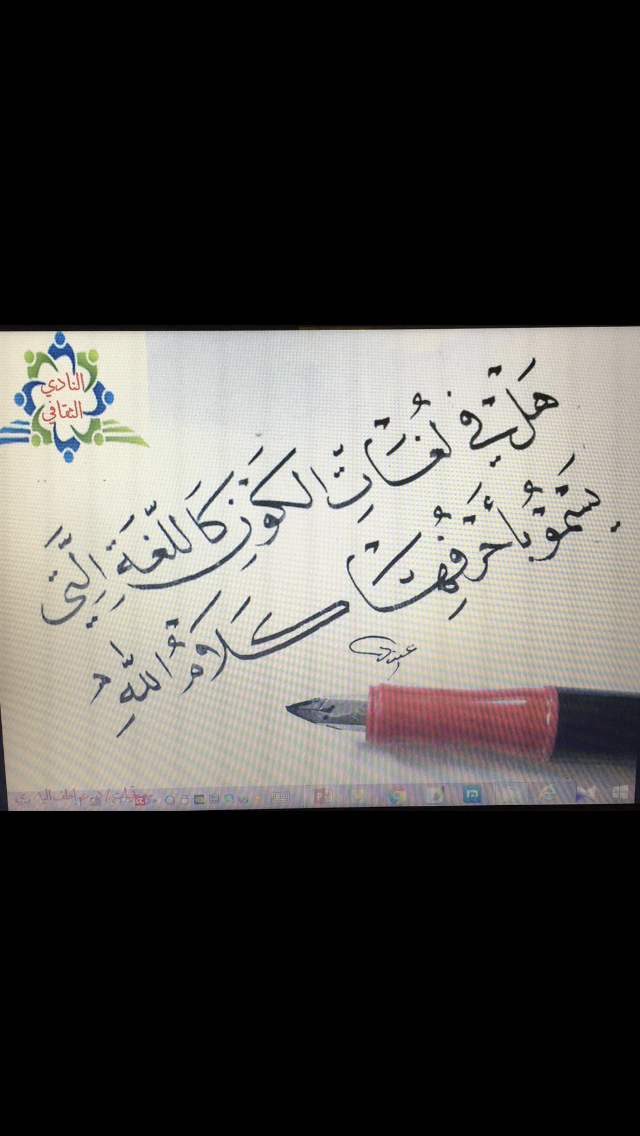 النادي
الثقافي
هَلْ فِي لُغَاتِ الكَوْنِ كَاللُّغَةِ الَّتِي
يَسْمُو بِأَحْرُفِهَا كَلَامُ اللهِ